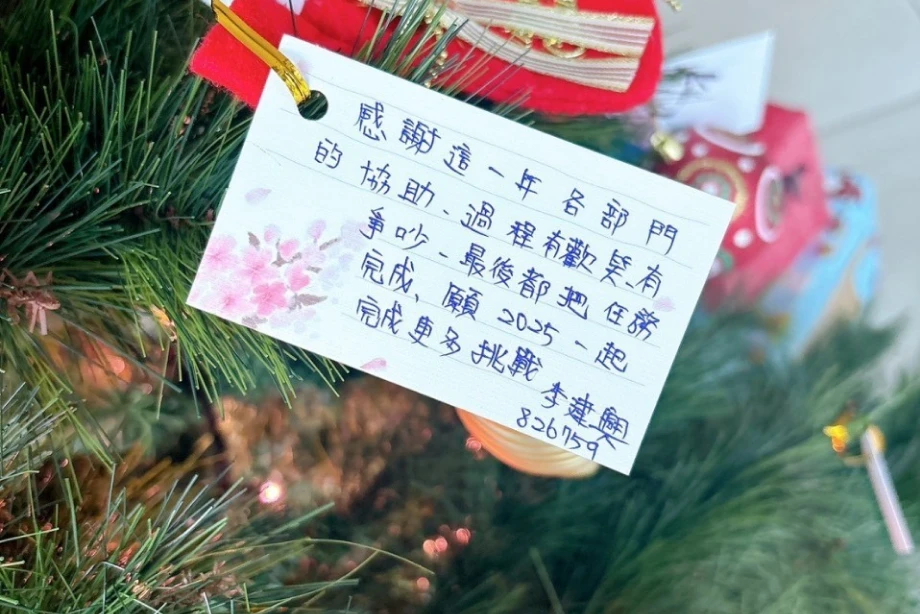 感謝這一年各部門
的協助、過程有歡笑、有
爭吵、最後都把任務
完成、願2025一起
完成更多挑戰
李建興
826759